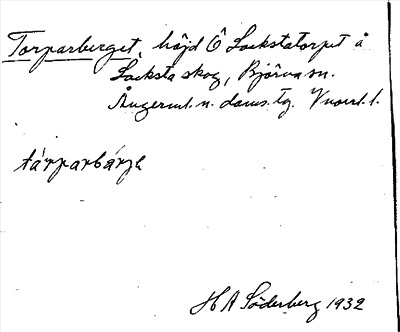 Torparberget, höjd Ö Lockstatorpet å
Locksta skog, Björna sn.
Ångerml. n. doms. tg. Vnorrl. l.
tárparbárjə
H A Söderberg 1932